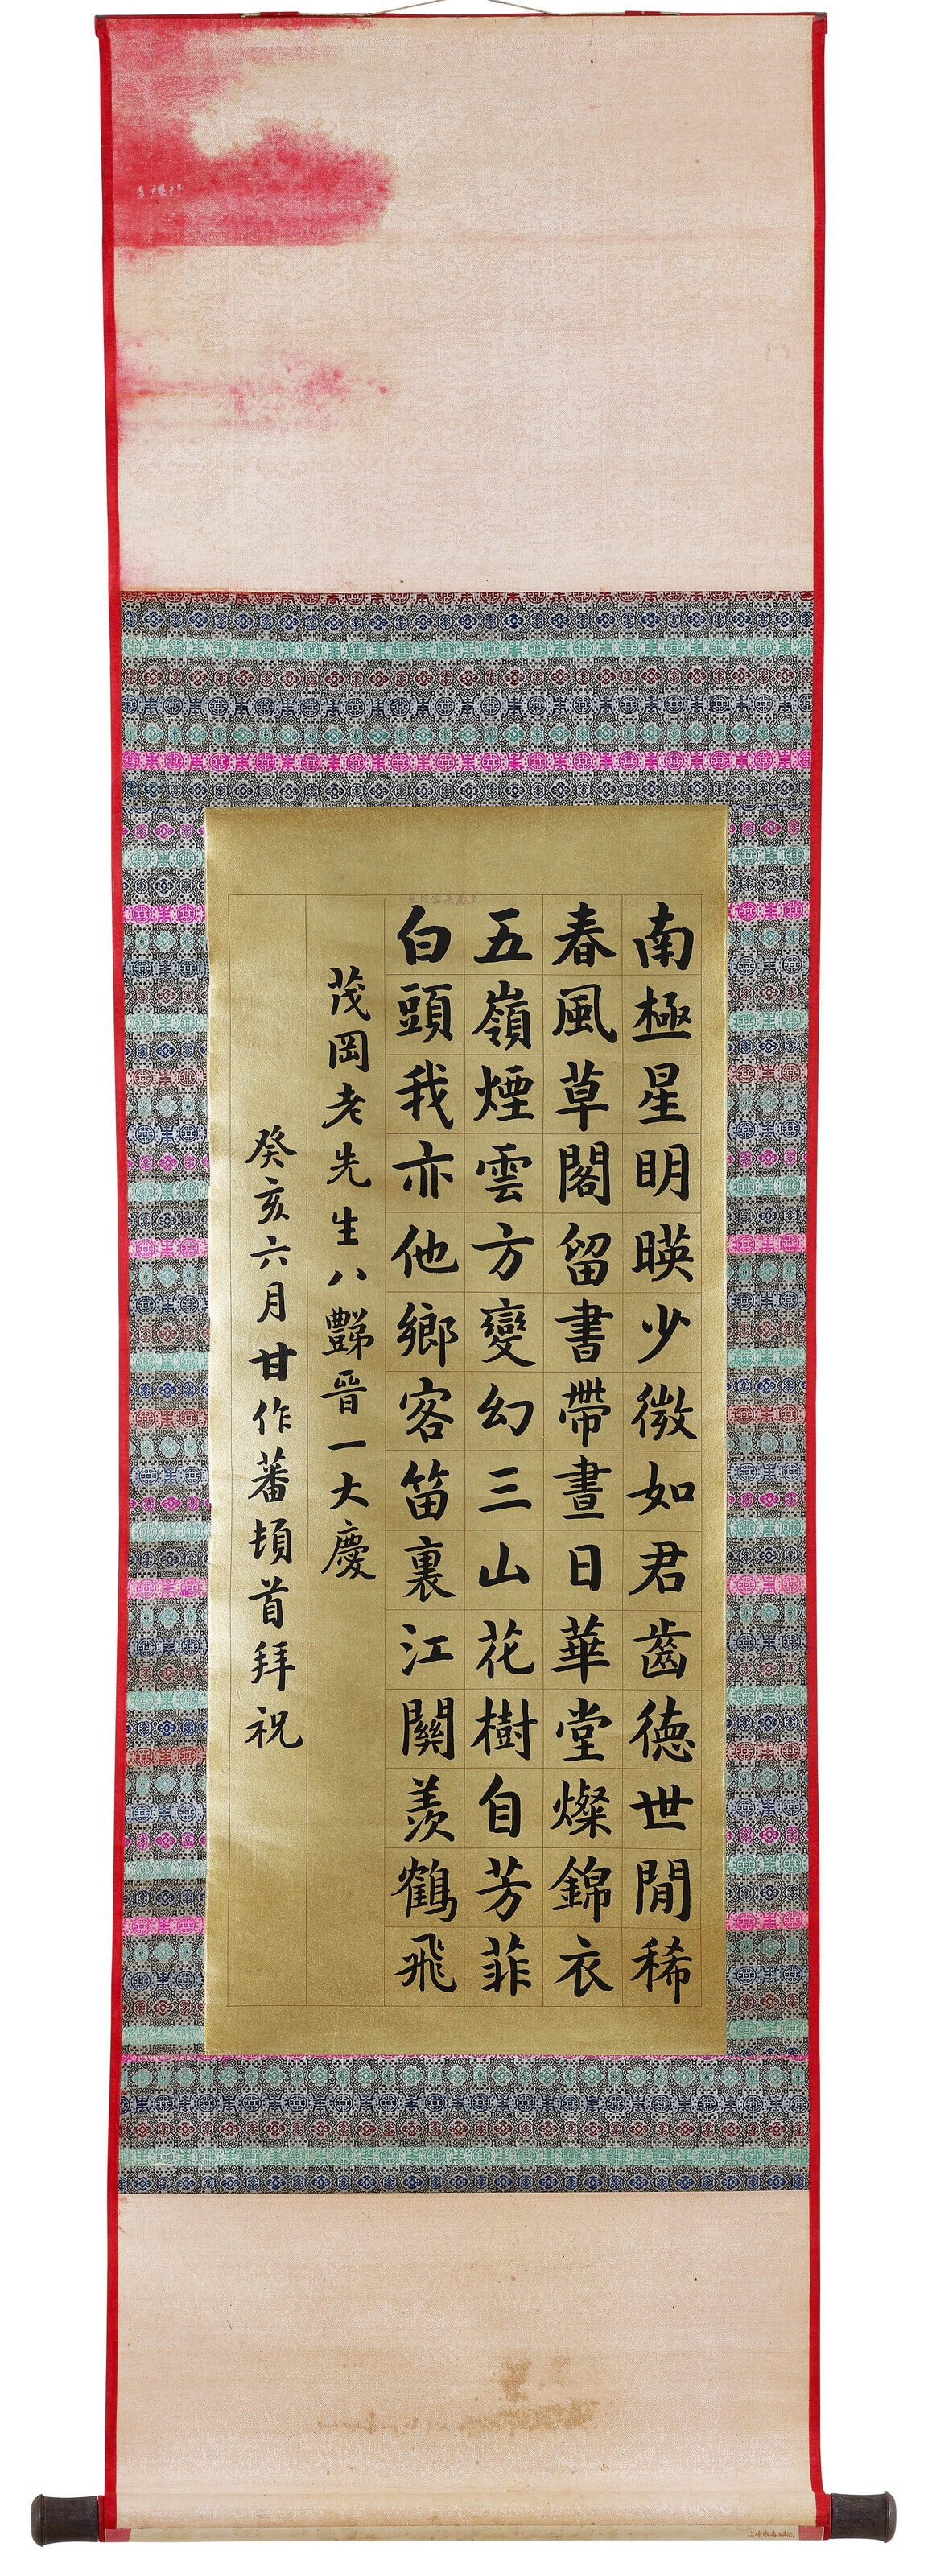 南極星明暎少微如君齒德世閒稀
春風草閣留書帶晝日華堂燦錦衣
五嶺煙雲方變幻三山花樹自芳菲
白頭我亦他鄉客笛裏江關羨鶴飛
茂岡老先生八豔晉一大慶
癸亥六月甘作蕃頓首拜祝